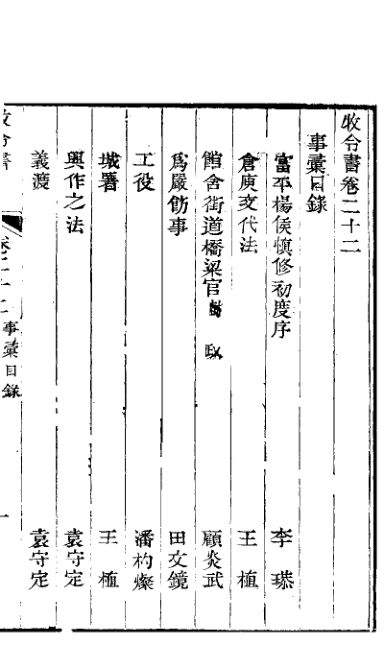 牧令書卷二十二
事彙目錄
富平楊侯愼修初度序 李㙺
倉庾交代法 王植
館舍街道橋梁官樹 顧炎武
爲嚴飭事 田文鏡
工役 潘杓燦
城署 王植
興作之法 袁守定
義渡 袁守定
牧令書 卷二十二 事彙目錄 一